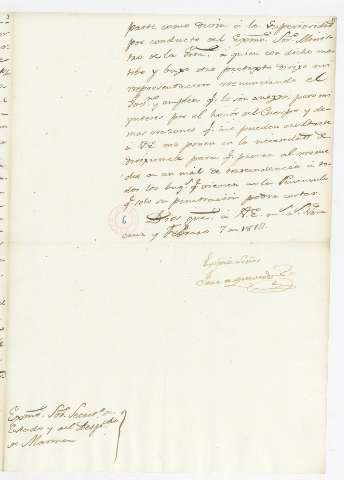 parte como decia á la Superioridad
por conducto del Exmo. Sor. Minis
tro de la Gra. á quien con dicho mo
tibo y baxo otro pretexto dirijo mi
representacion renunciando el
y empleo qe. le son anexos, pero mi
interes por el honor del Cuerpo y de
mas razones qe. no pueden ocultarse
á VE me ponen en la necesidad de
dirigirsela para qe. ponga al
dio a un mal de trascendencia á to
dos los buqs. qe. vienen en la Peninsula
qe. solo su penetracion podra cortar.
Dios gue. á VE
cruz y Febrero 7 de 1818.
6
Exmo. Señor
Exmo. Sor. Secreto. de
Estado y del Despo. de
Marina